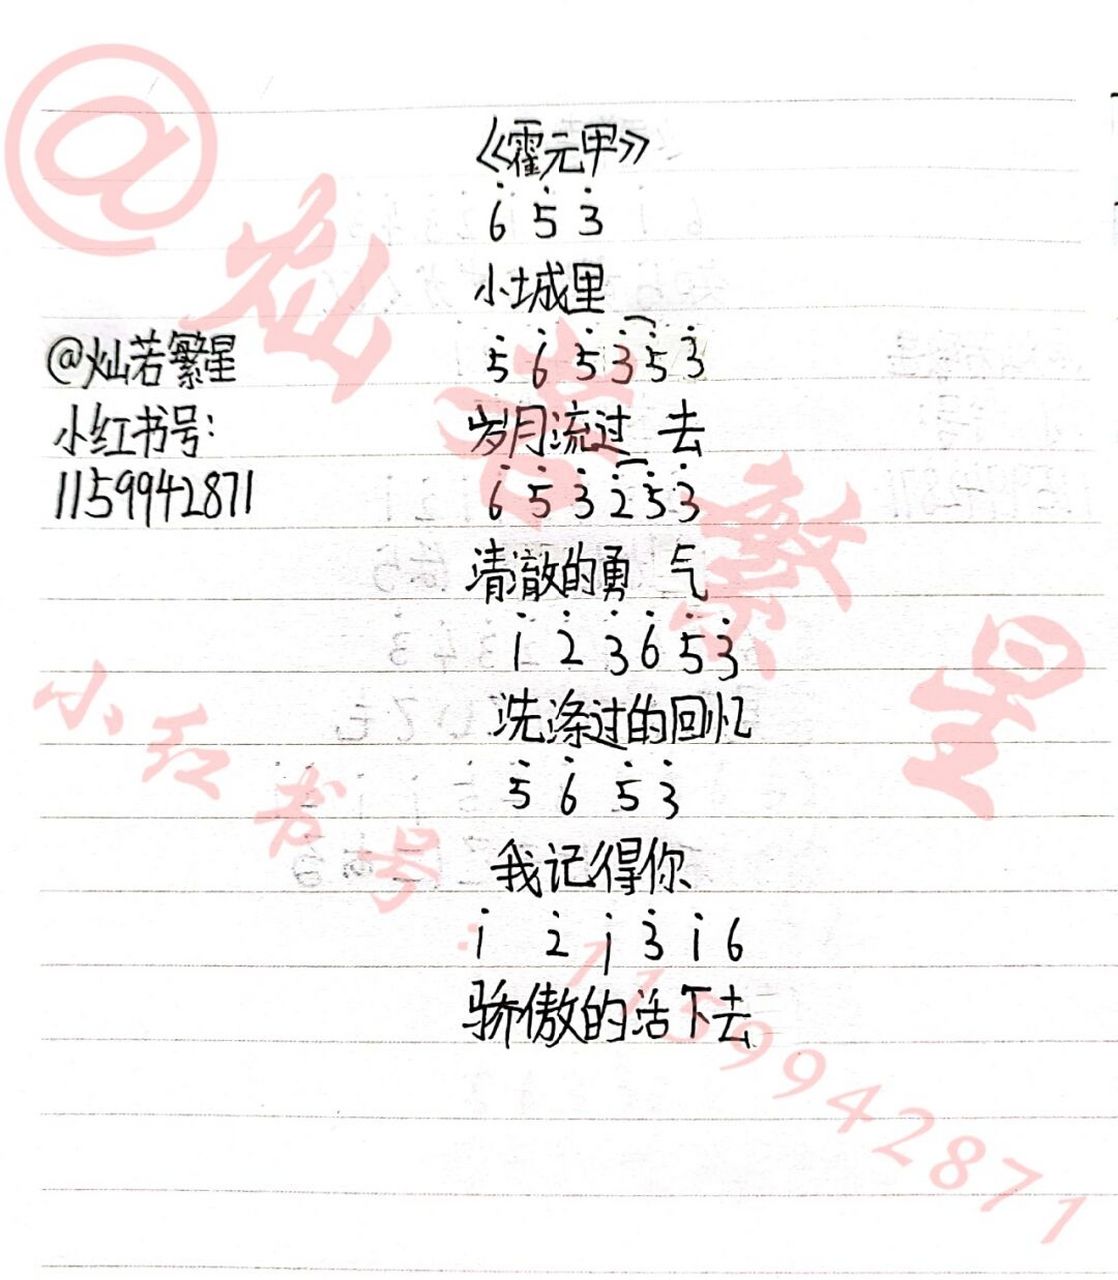 《霍元甲》
6̇ 5̇ 3̇
小城里
5̇ 6̇ 5̇ 3̇ 5̇ 3̇
岁月流过 去
6̇ 5̇ 3̇ 2̇ 5̇ 3̇
清澈的勇 气
1̇ 2̇ 3̇ 6̇ 5̇ 3̇
洗涤过的回忆
5̇ 6̇ 5̇ 3̇
我记得你
1̇ 2̇ 1̇ 3̇ 1̇ 6
骄傲的活下去
@灿若繁星
小红书号:
1159942871
@灿若繁星
小红书号:1159942871